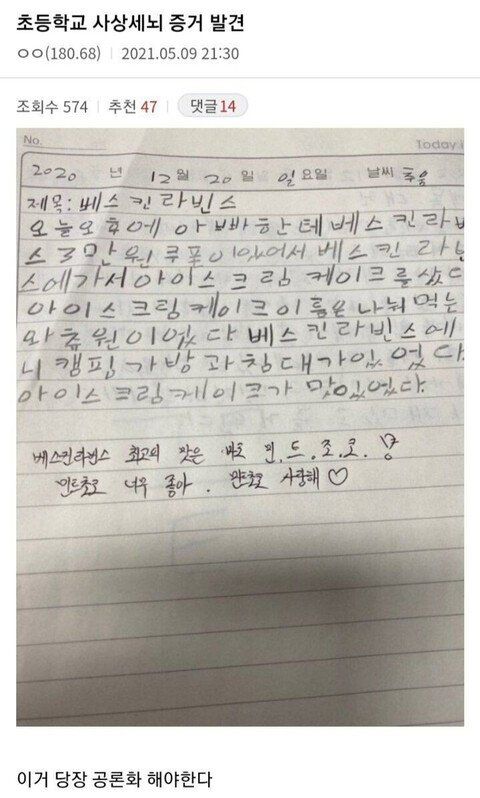 초등학교 사상세뇌 증거 발견
ㅇㅇ(180.68) | 2021.05.09 21:30
조회수 574 | 추천 47 | 댓글 14
No.
Today.i
2020 년 12월 20일 일요일 날씨 추움
제목: 베스킨라빈스
오늘오후에 아빠한테 베스킨라비
스 3만원 쿠폰이있어서 베스킨라빈
스에가서 아이스크림 케이크를샀다
아이스크림케이크이름은 나눠먹는
와츄원이었다 베스킨라빈스에
니 캠핑가방과침대가있었다
아이스크림케이크가 맛있었다.
베스킨라빈스 최고의 맛은 바로 민.트.초.코.!
민트초코 너무 좋아. 민초코 사랑해♡
이거 당장 공론화 해야한다